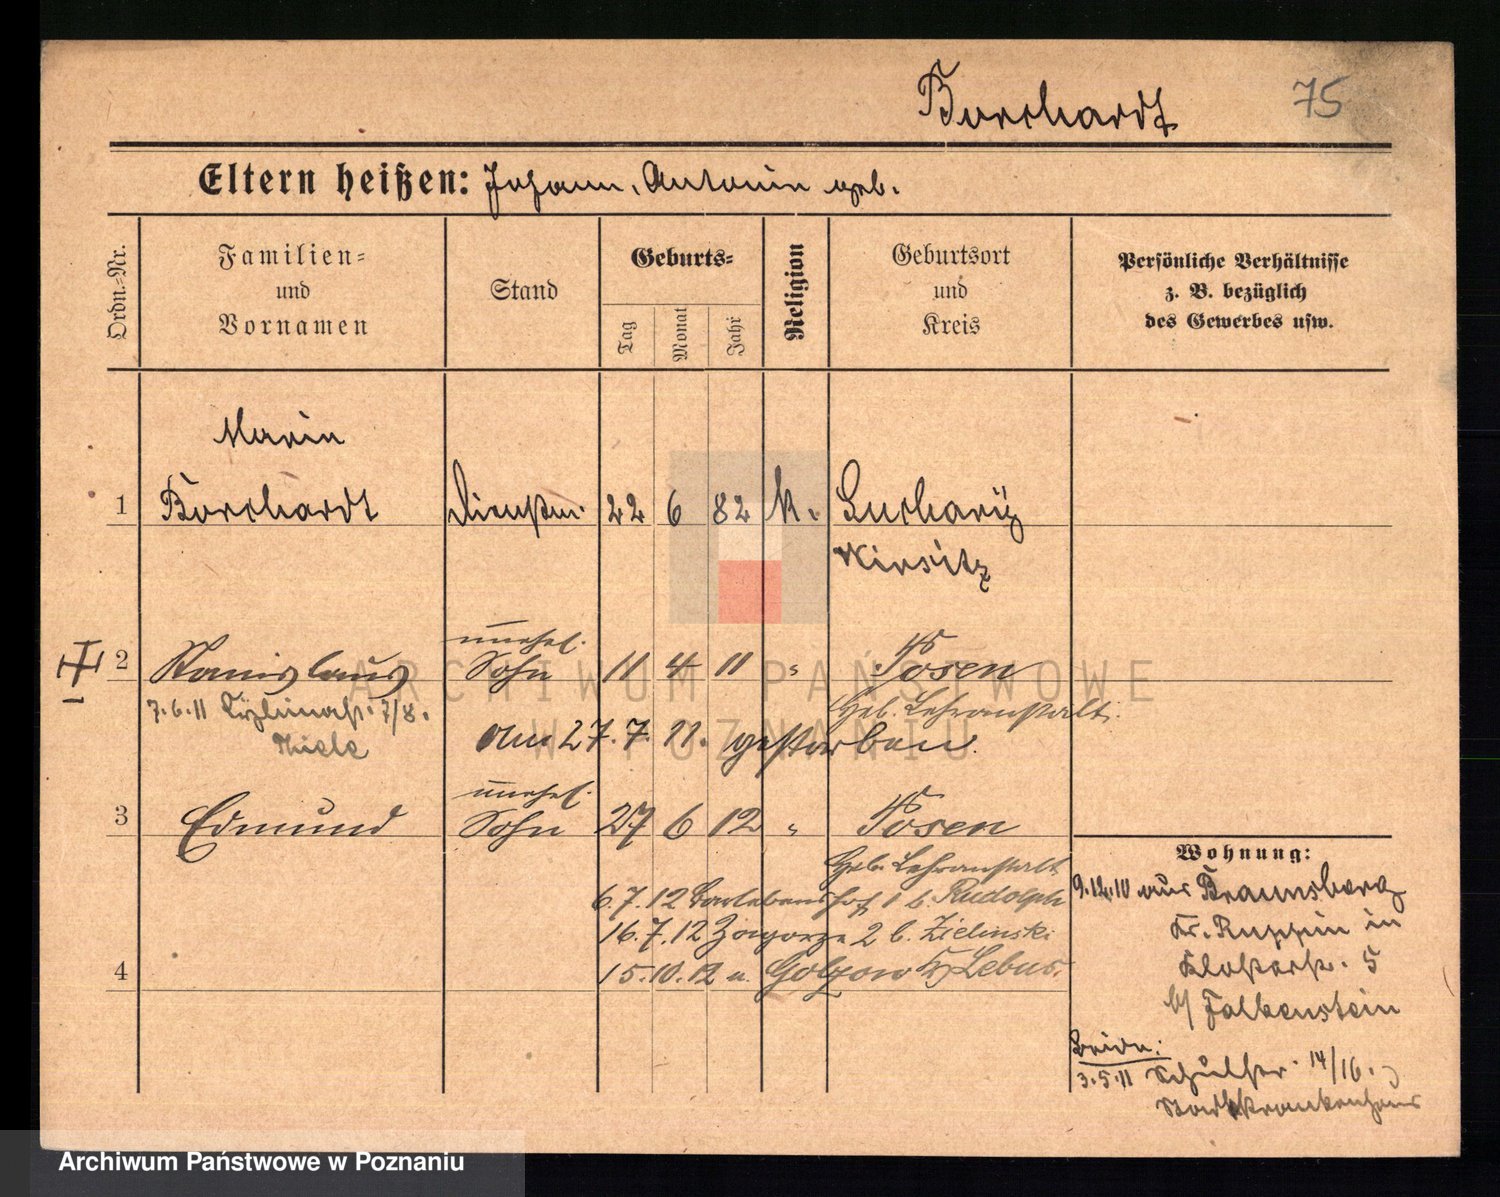 Borchardt 75
Eltern heißen: Johann, Antonin geb.
Ordn.=Nr.
Familien=
und
Vornamen
Stand
Geburts=
Tag
Monat
Jahr
Religion
Geburtsort
und
Kreis
Persönliche Verhältnisse
z. B. bezüglich
des Gewerbes usw.
Marin
1 Borchardt Dienstm. 22 6 82 k.
Wirsitz
unehel.
2 Stanislaus Sohn 11 4 11 " Posen
7.6.11 7/8. Geb. Lehranstalt.
Thiele am 27.7.11. gestorben.
unehel.
3 Edmund Sohn 27 6 12 " Posen
Geb. Lehranstalt
6.7.12 1 b. Rudolph
16.7.12 Zagorze 2 b. Zielinski
4 15.10.12 n. Golzow Kr. Lebus.
Wohnung:
9.12.10 aus Braunsberg
Kr. Ruppin in
Klosterstr. 5
b/ Falkenstein
Beide:
3.5.11 Schulstr. 14/16.
Stadtkrankenhaus
ARCHIWUM PAŃSTWOWE
W POZNANIU
Archiwum Państwowe w Poznaniu